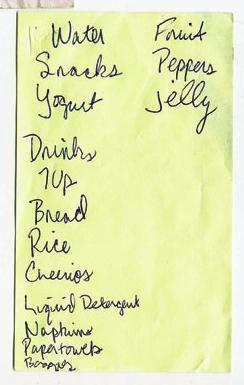 Water
Snacks
Yogurt
Drinks
7Up
Bread
Rice
Cheerios
Liquid Detergent
Napkins
Papertowels
Fruit
Peppers
Jelly